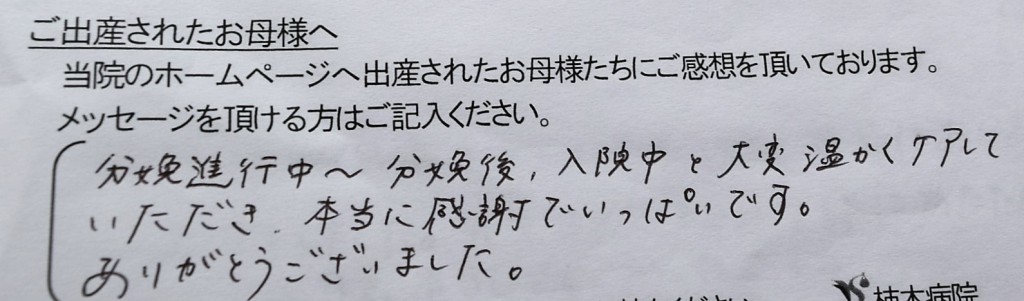 ご出産されたお母様へ
当院のホームページへ出産されたお母様たちにご感想を頂いております。
メッセージを頂ける方はご記入ください。
分娩進行中〜分娩後,入院中と大変温かくケアして
いただき、本当に感謝でいっぱいです。
ありがとうございました。
柿本病院